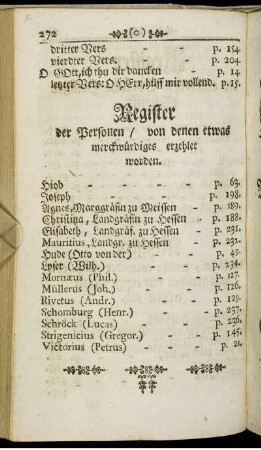 272
dritter Vers - - p. 154.
vierdter Vers. - - p. 204.
O GOtt, ich thu dir dancken - p. 14
letzter Vers: O HErr, hilff mir vollend. p. 15.
Register
der Personen / von denen etwas
merckwürdiges erzehlet
worden.
Hiob - - - p. 63.
Joseph - - - p. 198.
Agnes, Marggräfin zu Meissen - p. 189.
Christina, Landgräfin zu Hessen - p. 188.
Elisabeth, Landgräf. zu Hessen - p. 231.
Mauritius, Landgr. zu Hessen - p. 232.
Hude (Otto von der) - - p. 49.
Lyser (Wilh.) - - - p. 234.
Mornæus (Phil.) - - p. 127.
Müllerus (Joh.) - - p. 126.
Rivetus (Andr.) - - p. 129.
Schomburg (Henr.) - - p. 237.
Schröck (Lucas) - - p. 236.
Strigenicius (Gregor.) - - p. 145.
Victorius (Petrus) - - p. 21.